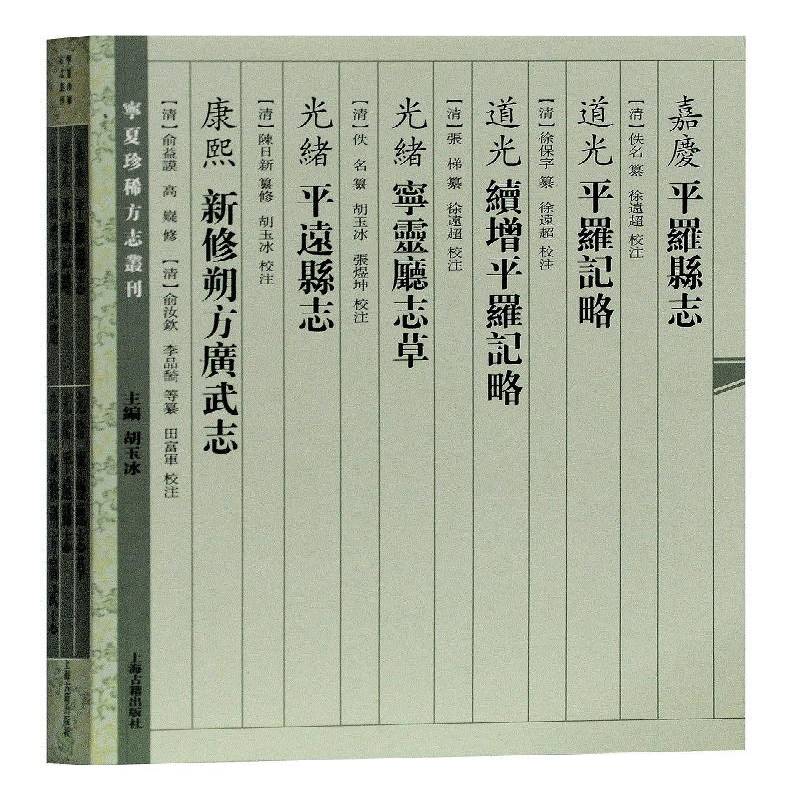 嘉慶 平羅縣志
［清］佚名 纂 徐遠超 校注
道光 平羅記略
［清］徐保字 纂 徐遠超 校注
道光 續增平羅記略
［清］張梯 纂 徐遠超 校注
光緒 寧靈廳志草
［清］佚名 纂 胡玉冰 張煜坤 校注
光緒 平遠縣志
［清］陳日新 纂修 胡玉冰 校注
康熙 新修朔方廣武志
［清］俞益謨 高嶷 修 ［清］俞汝欽 李品𬹼 等纂 田富軍 校注
寧夏珍稀方志叢刊
主編 胡玉冰
上海古籍出版社
上海古籍出版社